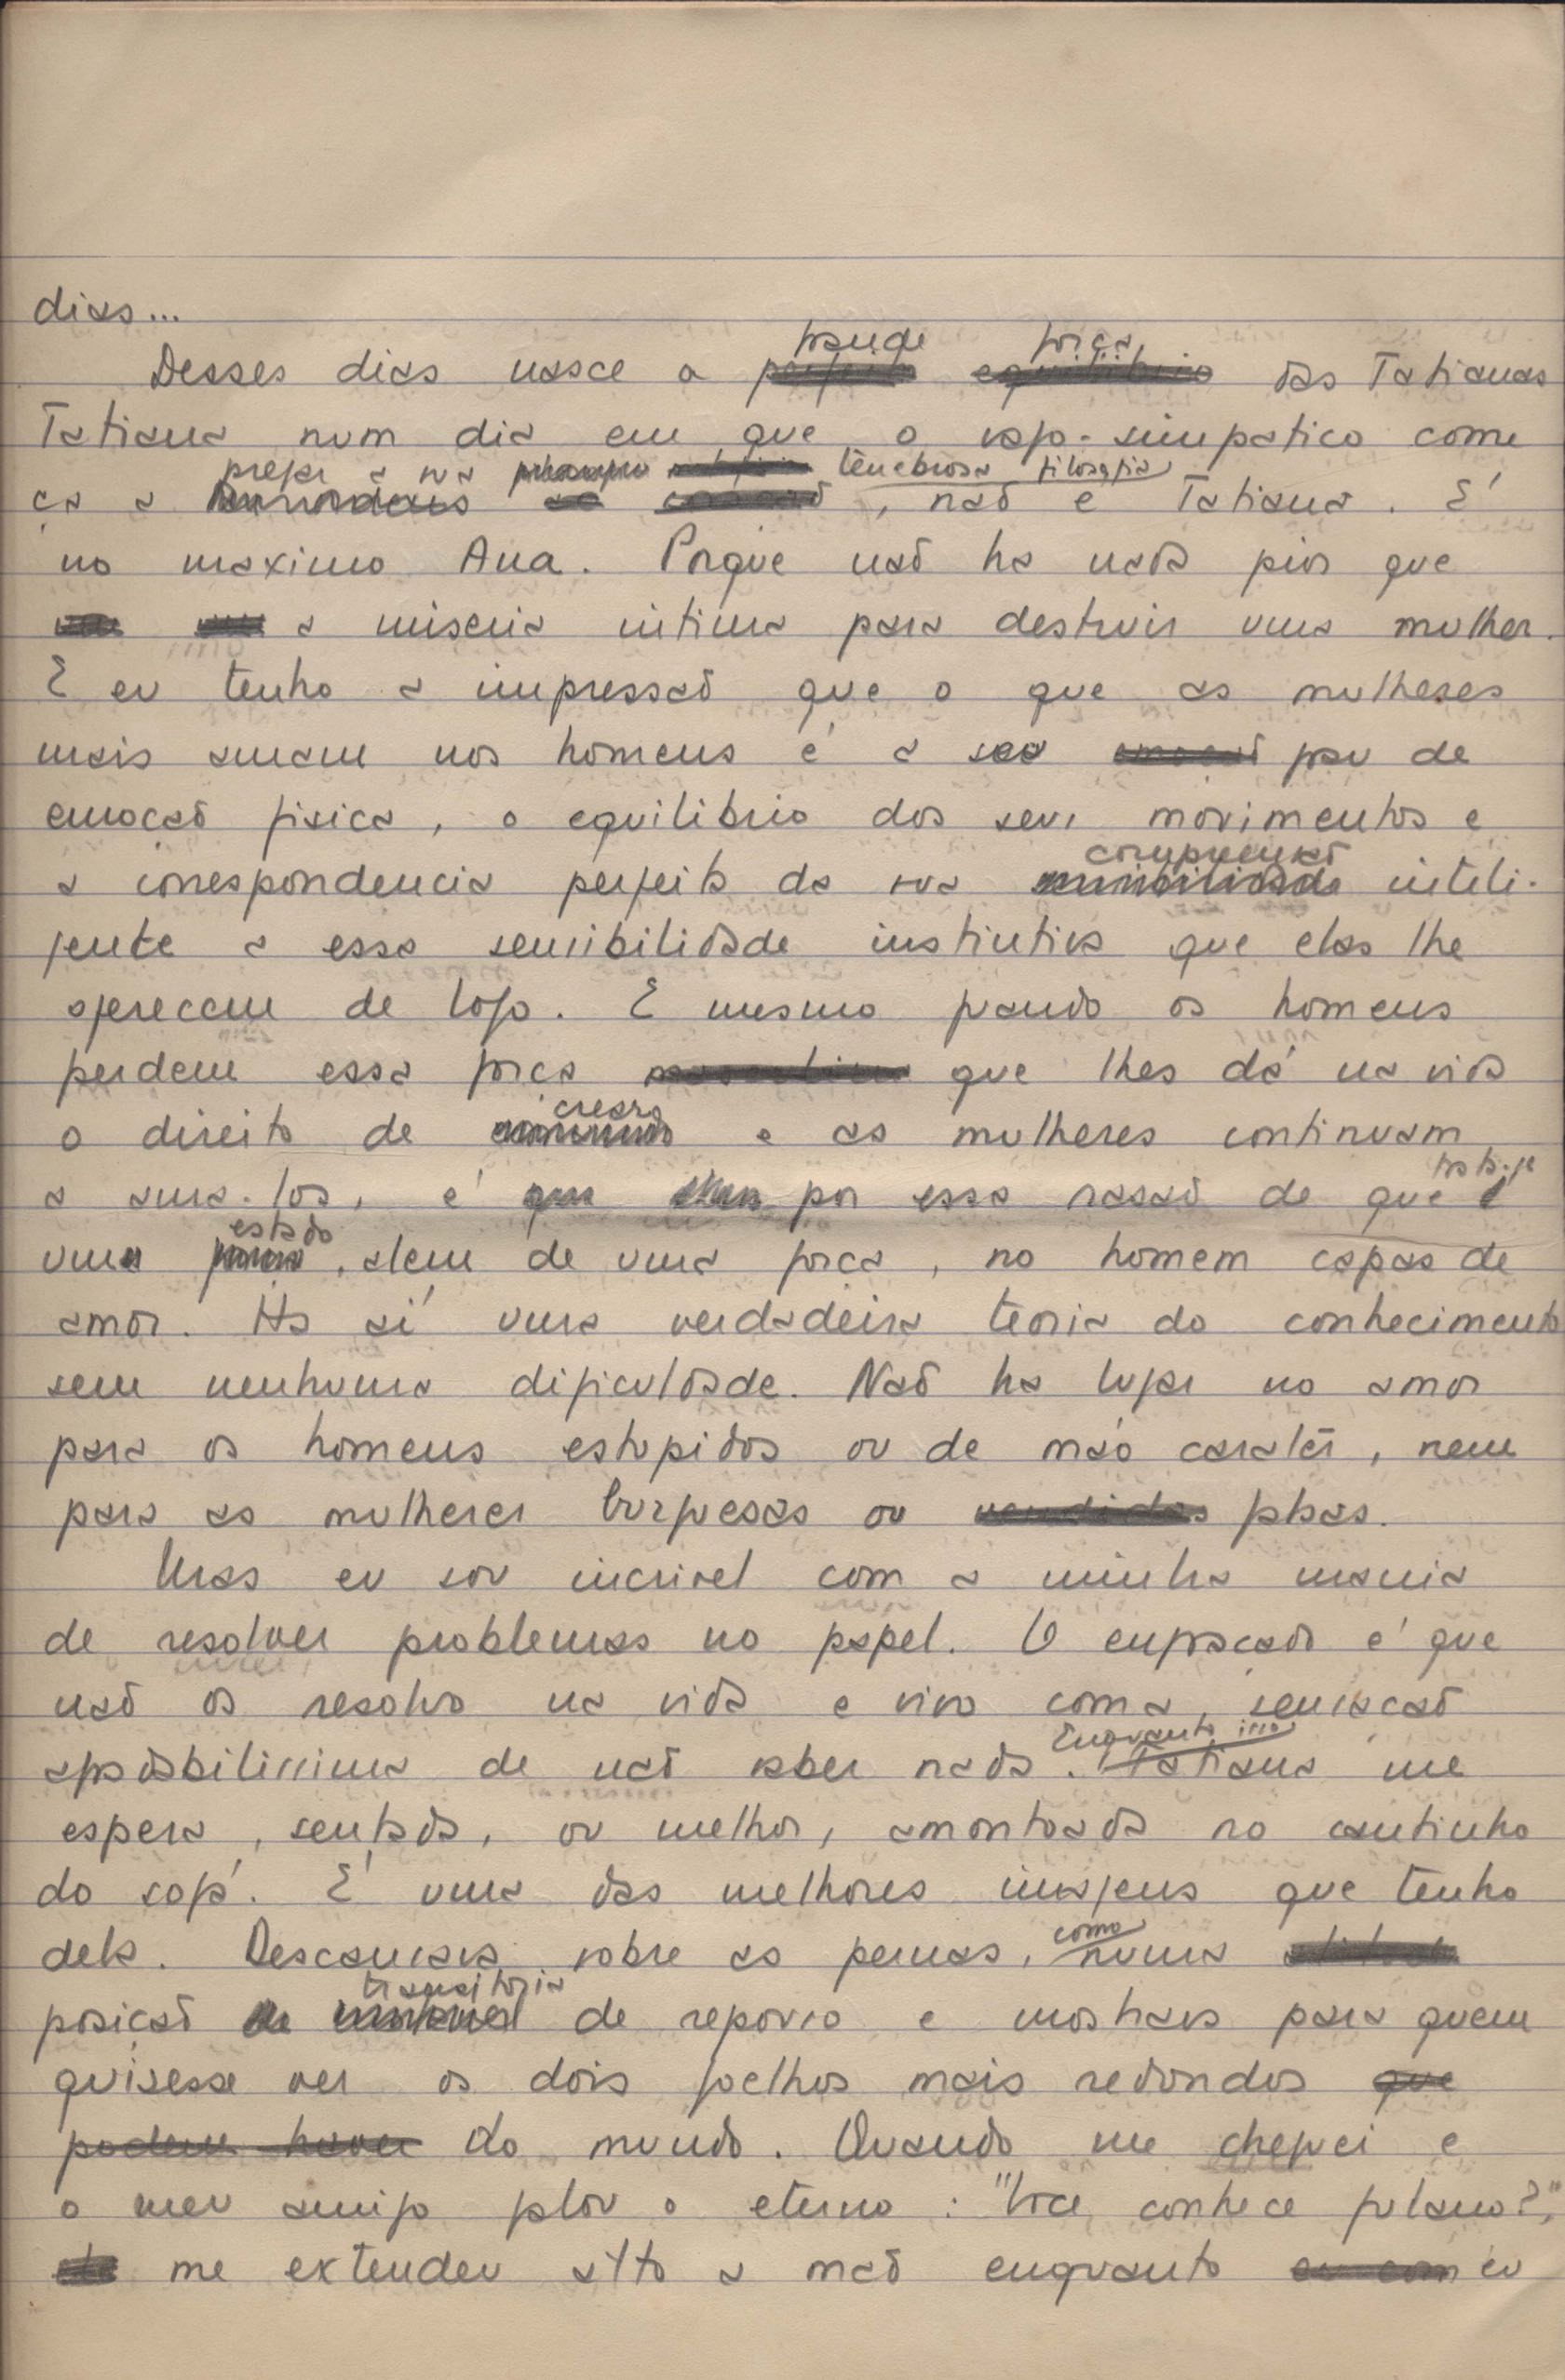 dias...
Desses dias nasce a grande força das Tatianas
Tatiana num dia em que o vago-simpatico come
ça a pregar a sua tenebrosa filosofia, naõ e Tatiana. É
no maximo Ana. Porque naõ ha nada pior que
a miseria intima para destruir uma mulher.
E eu tenho a impressaõ que o que as mulheres
mais amam nos homens é a sua grau de
emocaõ fisica, o equilibrio dos seus movimentos e
a correspondencia perfeita da sua compreensaõ inteli-
gente a essa sensibilidade instintiva que elas lhe
oferecem de logo. E mesmo quando os homens
perdem essa força que lhes dá na vida
o direito de crear e as mulheres continuam
a ama-los, é por essa rasaõ de que
uma estado, alem de uma força, no homem capas de
amor. Ha aí uma verdadeira teoria do conhecimento
sem nenhuma dificuldade. Naõ ha lugar no amor
para os homens estupidos ou de máo caratér, nem
para as mulheres burguesas ou
Mas eu sou incrivel com a minha mania
de resolver problemas no papel. O engraçado é que
naõ os resolvo na vida e vivo com a sensacaõ
agradabilissima de naõ saber nada. Enquanto isso Tatiana me
espera, sentada, ou melhor, amontoada no cantinho
do sofá. É uma das melhores imagens que tenho
dela. Descansava sobre as pernas, como numa
posiçaõ transitoria de repouso e mostrava para quem
quisesse ver os dois joelhos mais redondos que
podem haver do mundo. Quando me cheguei e
o meu amigo falou o eterno: "Voce conhece fulano?",
me extendeu alto a maõ enquanto eu